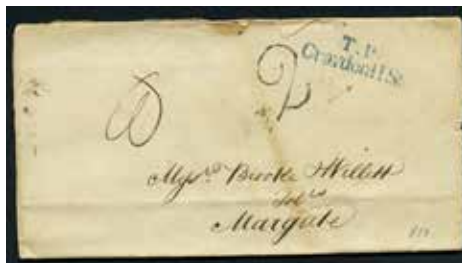 8 2 T.P.
Crawford St
Messrs Brooke & Willett
Solrs
Margate